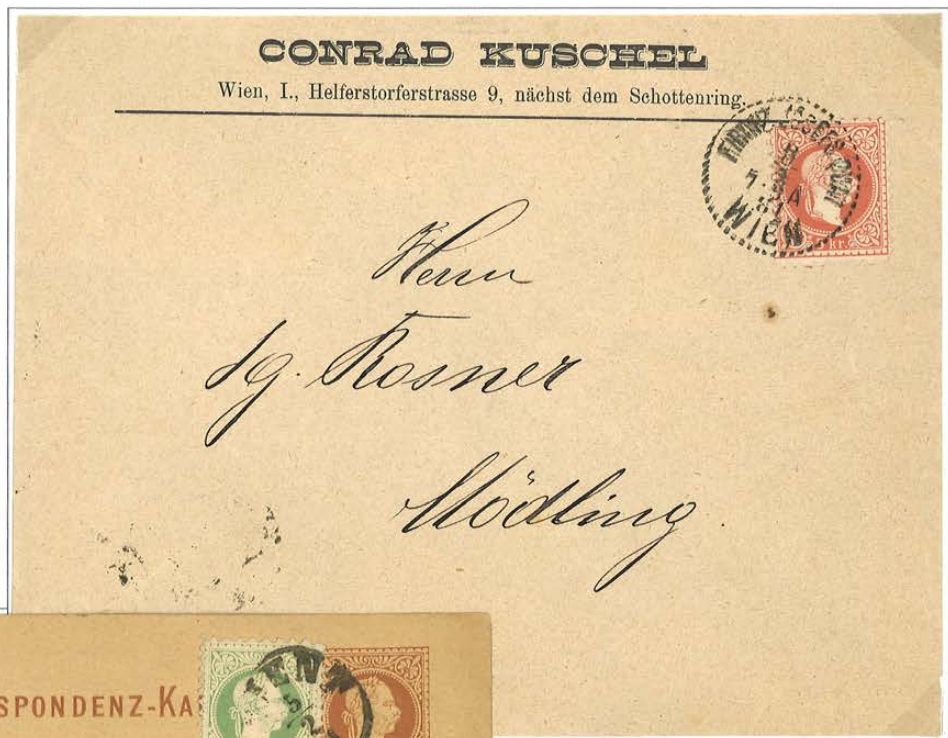 CONRAD KUSCHEL
Wien, I., Helferstorferstrasse 9, nächst dem Schottenring.
FRANZ JOSEFS QUAI
WIEN
kr.
Herrn
Ig. Rosner
Mödling
SPONDENZ-KA